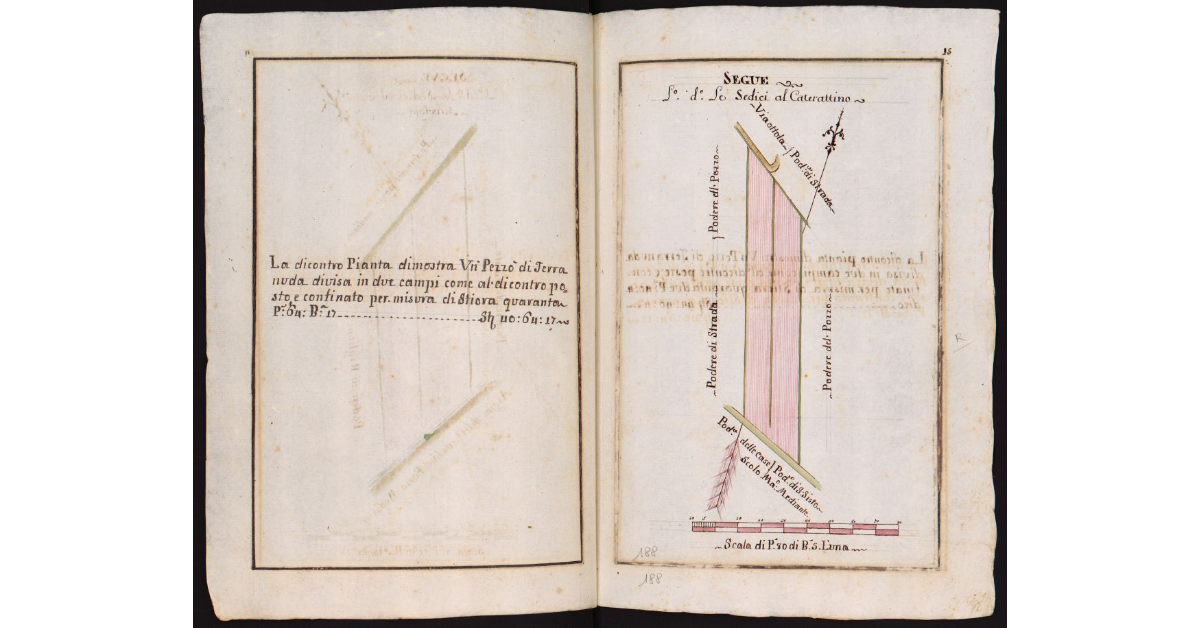 La dicontro Pianta dimostra Vn Pezzo di Terra
nuda divisa in due campi come al dicontro po
sto, e confinato per misura di Stiora quaranta
P: 64: B: 17 40: 64: 17
35
SEGUE
Lo. do. Le Sedici al Caterattino
Viaottola
Pod. di Strada
Podere del Pozzo
Podere di Strada
Podere del Pozzo
Pod. delle Case
Pod. di S. Sisto
Scolo Mediante
Scala di P. 80 di B. 5. l'una
188
188
R